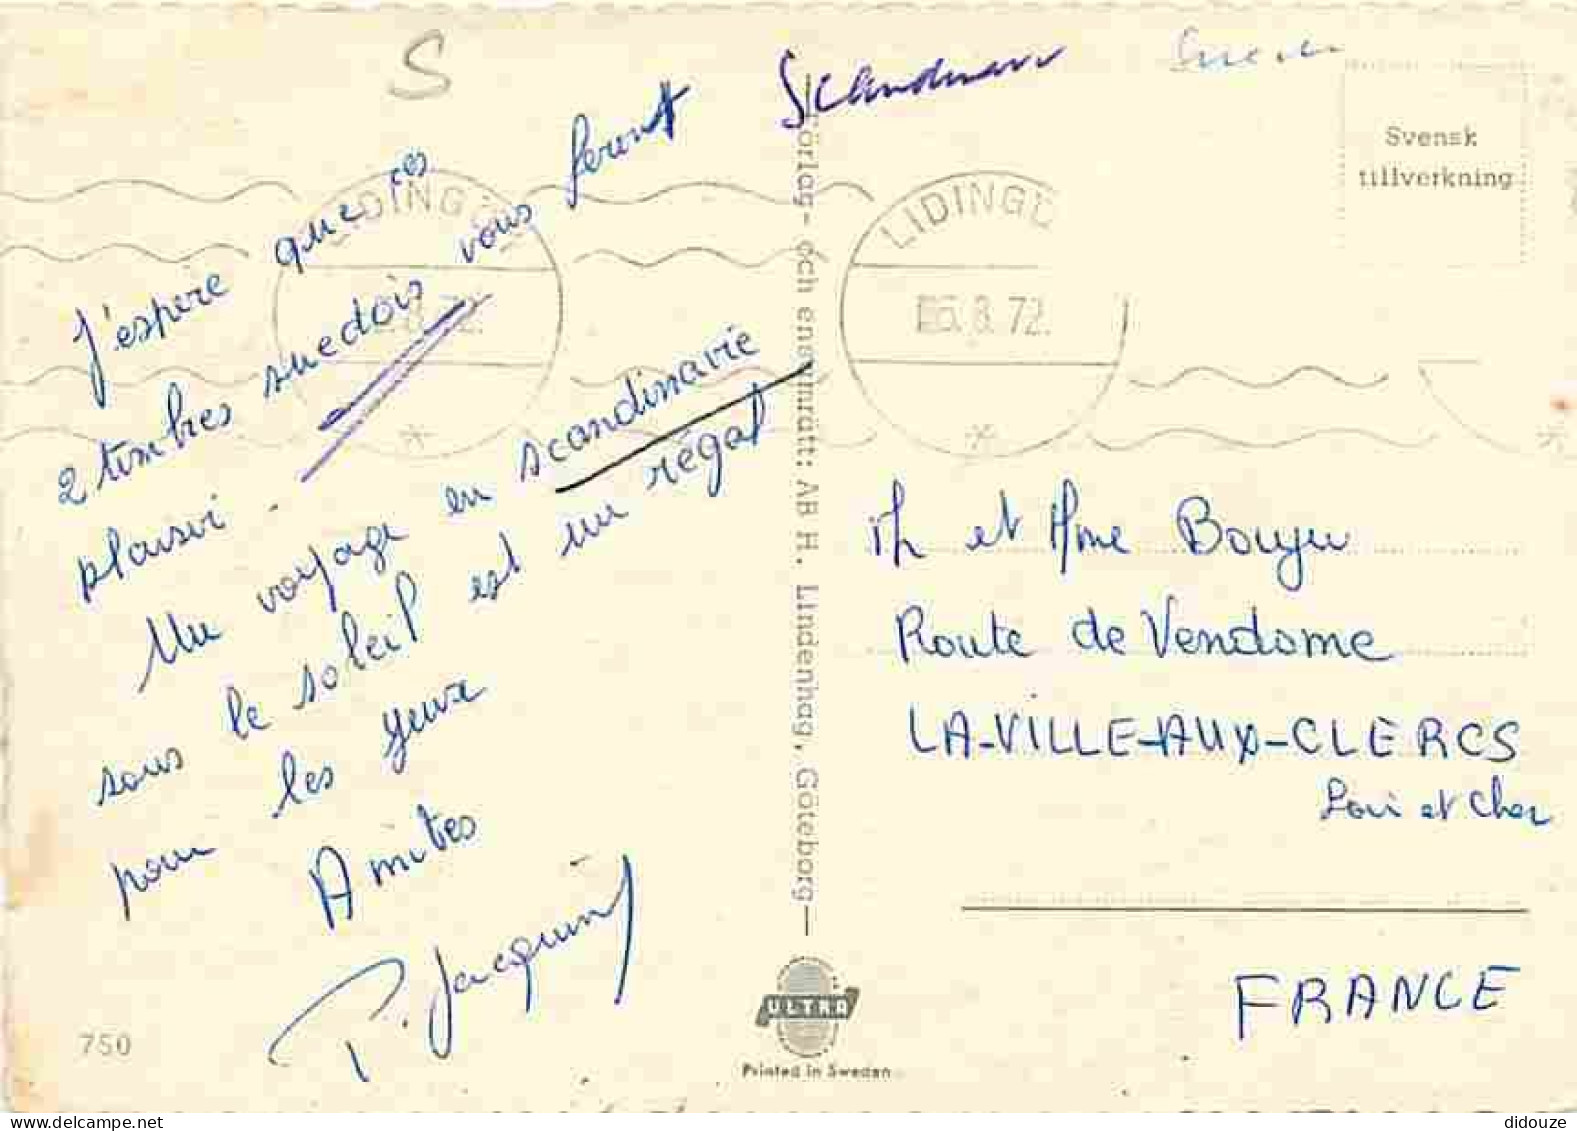 S
Scandinavie
J'espere que ces
2 timbres suedois vous feront
plaisir.
Un voyage en scandinavie
sous le soleil est un régal
pour les yeux
Amities
P. Jacquin
750
LIDINGÖ
LIDINGÖ
5.8.72.
Förlag- och ensamrätt: AB H. Lindenhag, Göteborg
ULTRA
Printed in Sweden
Svensk
tillverkning
M et Mme Bouju
Route de Vendome
LA-VILLE-AUX-CLERCS
Loir et Cher
FRANCE
didouze